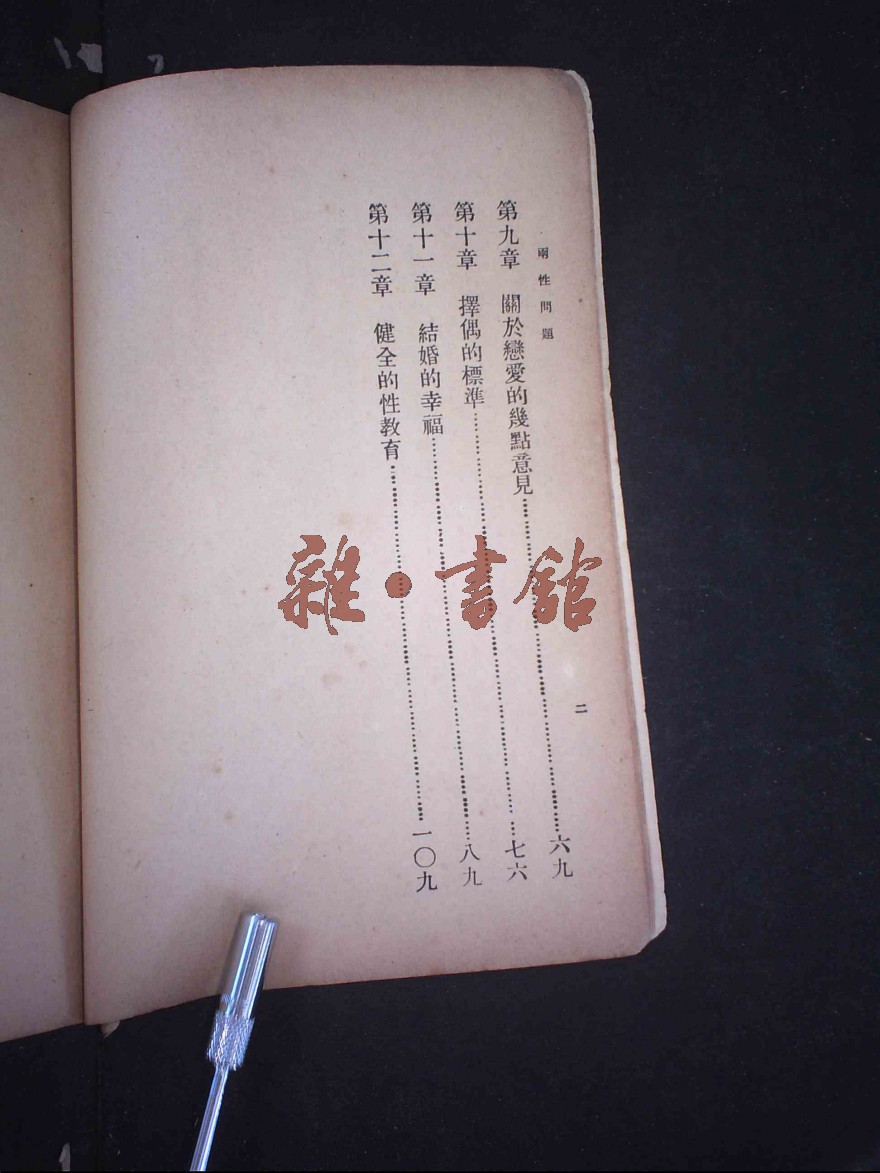 兩性問題
二
第九章 關於戀愛的幾點意見……六九
第十章 擇偶的標準……七六
第十一章 結婚的幸福……八九
第十二章 健全的性教育……一〇九
雜·書館